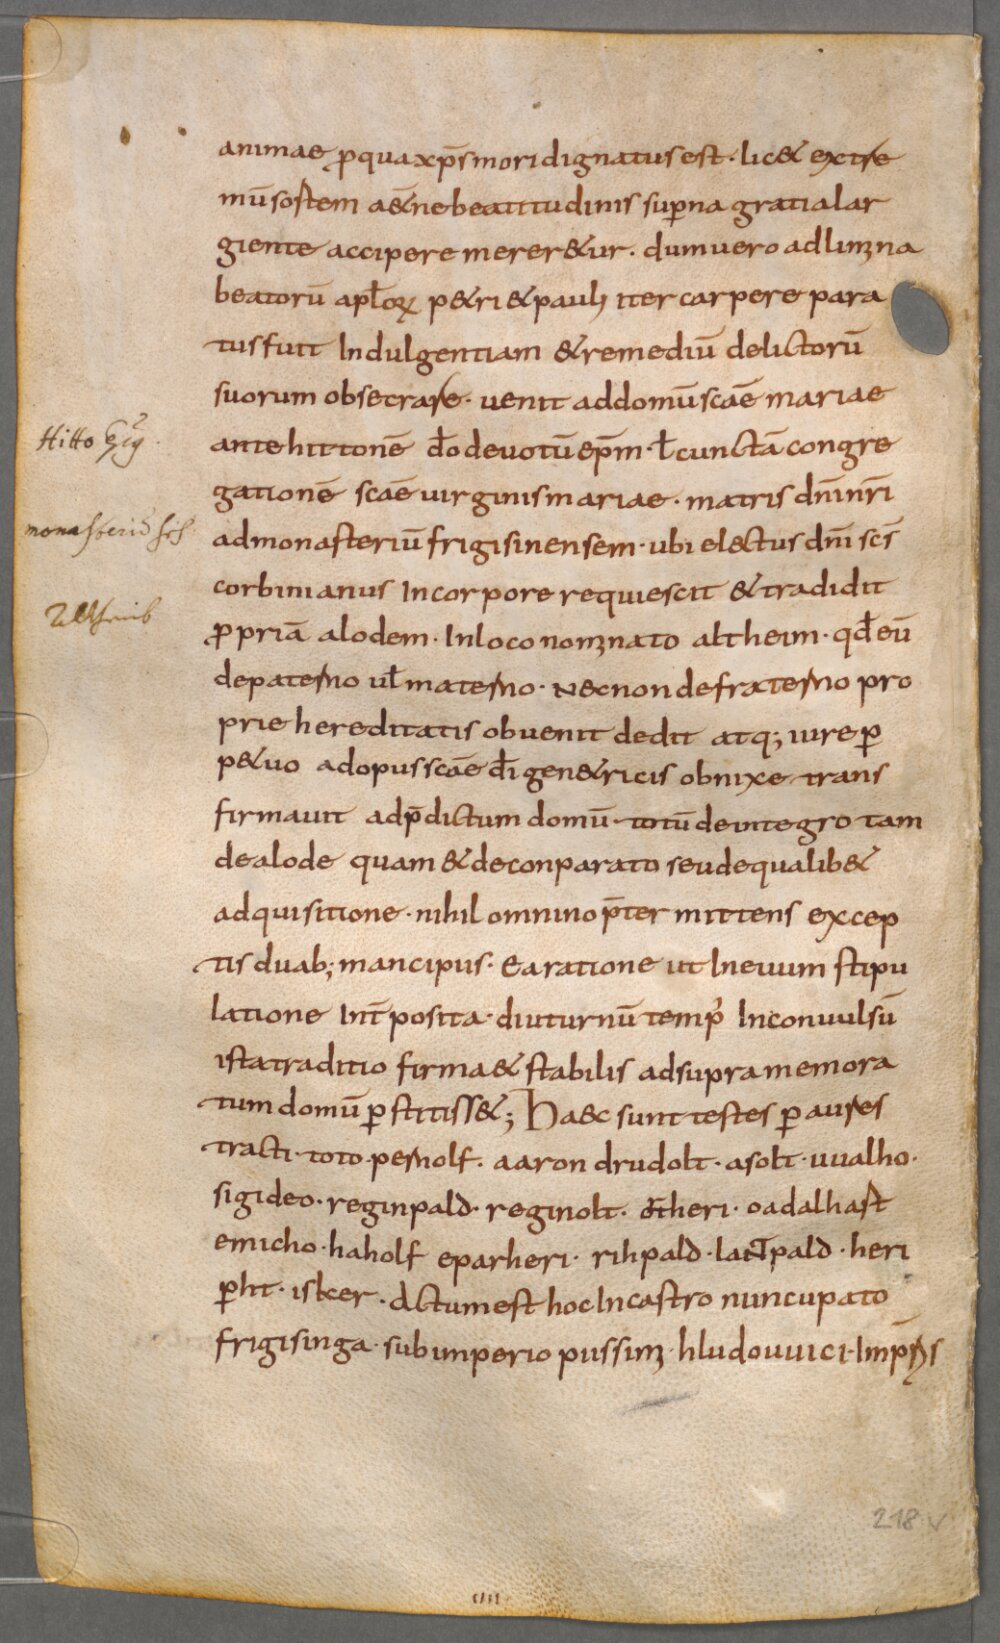 animae ꝑ qua xp̄s mori dignatus est · lic& extre
mū sostem a&̄ne beatitudinis suꝑna gratia lar
giente accipere merer&ur · dum uero ad limina
beatorū apl̄oꝝ p&ri & pauli iter carpere para
tus fuit Indulgentiam & remediū delictorū
suorum obsecrare · uenit ad domū scāe mariae
ante hittonē d̄o deuotū ep̄m · ł cunctā congre
gationē scāe uirginis mariae · matris dn̄i nr̄i
Hitto Ep̄s
ad monasteriū frigisinensem · ubi electus dn̄i scs̄
monasteriū
corbinianus In corpore requiescit & tradidit
Altheim
ꝓpriā alodem · In loco nominato altheim · qd̄ eū
de paterno ul̄ materno · Necnon de fraterno pro
prie hereditatis obuenit dedit atq; iure ꝑ
p&uo ad opus scāe d̄i gen&ricis obnixe trans
firmauit ad p̄dictum domū · totū de integro tam
de alode quam & de conparato seu de qualib&
adquisitione · nihil omnino p̄ter mittens excep
tis duab; mancipiis · Ea ratione ut In euum stipu
latione Int̄posita · diuturnū temp᾽ Inconuulsū
ista traditio firma & stabilis ad supra memora
tum domū ꝑstitiss&; Haec sunt testes ꝑ aures
tracti · toto · pernolf · aaron drudolt · asolt · uualho ·
sigideo · reginpald · reginolt · ōtheri · oadalhast
emicho · haholf eparheri · rihpald · lantpald · heri
ꝑht · isker · Actum est hoc In castro nuncupato
frigisinga · sub imperio piissimi · hludouuici · Imp̄ris
218 v